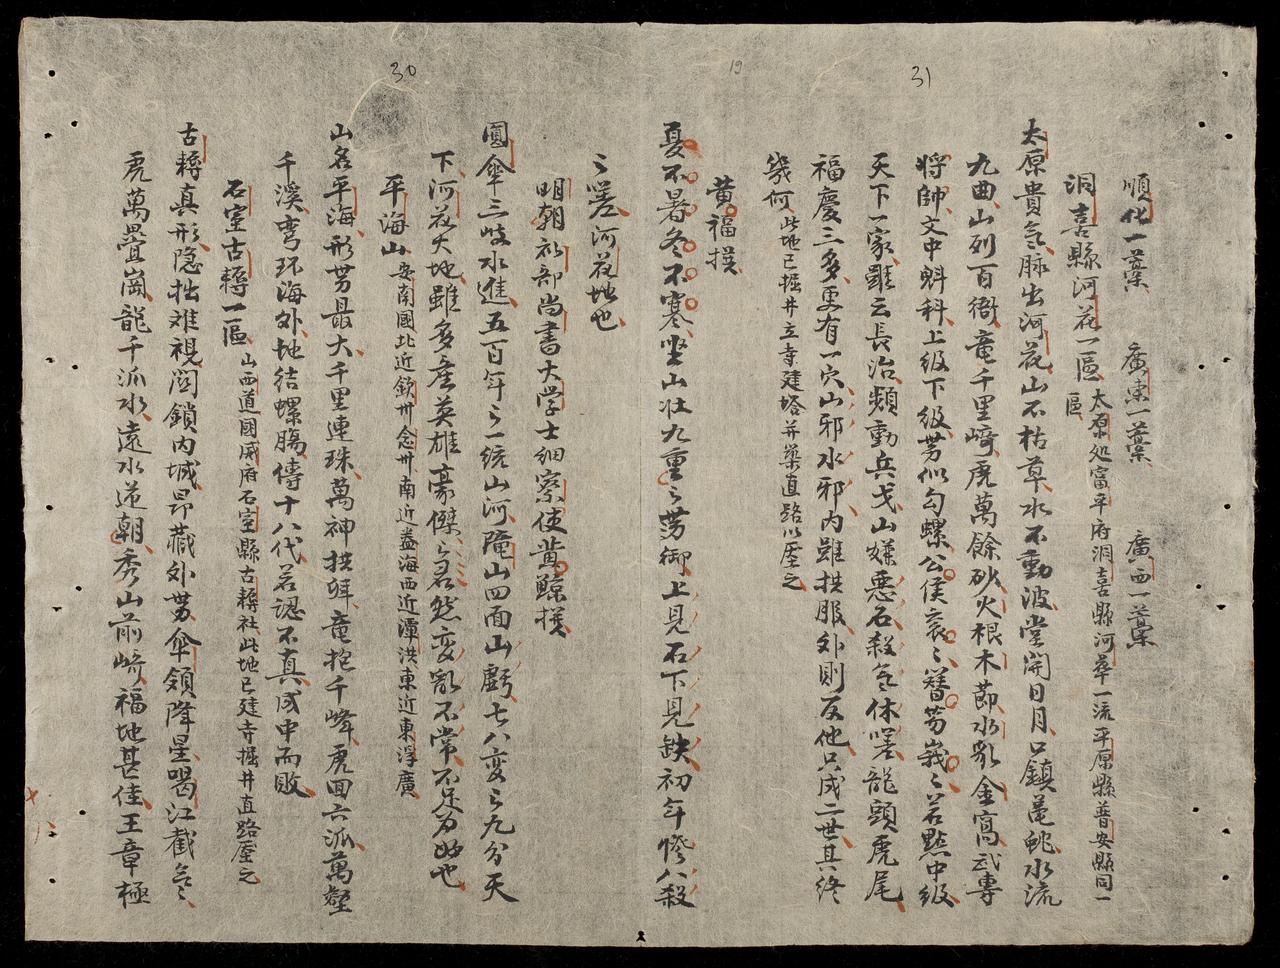 31
順化一藁 廣東一藁 廣西一藁
洞喜縣河花一區 太原処富平府洞喜縣河葬一流平原縣普安縣同一區
太原貴気脉出河花山不枯草水不動波堂開日月口鎮黽鮡水流
九曲山列百衙竜千里崎虎萬餘砂火根木莭水乳金窩武專
将帥文中魁科上級下級势似勾螺公侯衮〻簮笏峩〻若點中級
天下一家雖云長治頻動兵戈山嫌悪石殺気休嗟龍頭虎尾
福慶三多更有一穴山邪水邪内雖拱服外則反他只成二世其終
幾何 此地已掘井立寺建塔并築直路以壓之
黄福撰
夏不暑冬不寒坐山壮九重之势御上見石下見缺初年惨八殺
19
之嗟河花地也
明朝礼部尚書大学士細察使黄鯨撰
圓傘三岐水進五百年之一統山河隆山四面山虧七八变之九分天
下河花大地雖多産英雄豪傑之君然变乱不常不足为好也
平海山 安南國北近欽州念州南近盖海西近潭洪東近東浮廣
30
山名平海形势最大千里連珠萬神拱㖓竜抱千峰虎回六派萬壑
千溪弯环海外地结螺膓傳十八代若認不真成中而敗
石室古耨一區 山西道國威府石室縣古耨社此地已建寺掘井直路壓之
古耨真形隐拙难視関鎖内城昂藏外势傘領降星喝江截気
虎萬疊崗龍千派水遠水逆朝秀山前崎福地甚佳王章極